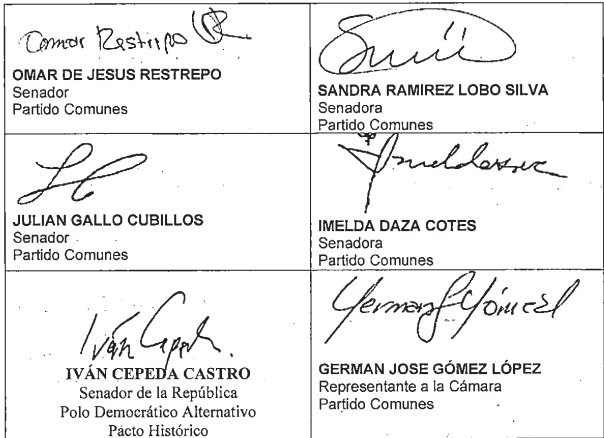 Omar Restrepo
OMAR DE JESUS RESTREPO
Senador
Partido Comunes
SANDRA RAMIREZ LOBO SILVA
Senadora
Partido Comunes
JULIAN GALLO CUBILLOS
Senador
Partido Comunes
IMELDA DAZA COTES
Senadora
Partido Comunes
Iván Cepeda
IVÁN CEPEDA CASTRO
Senador de la República
Polo Democrático Alternativo
Pacto Histórico
German Gómez
GERMAN JOSE GÓMEZ LÓPEZ
Representante a la Cámara
Partido Comunes